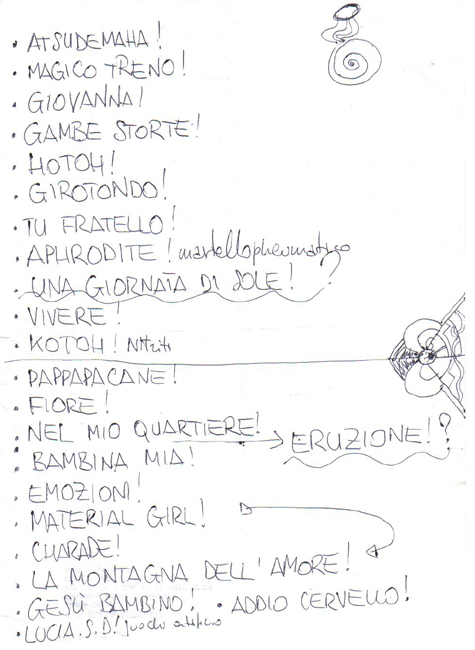 • ATSUDEMAHA!
• MAGICO TRENO!
• GIOVANNA!
• GAMBE STORTE!
• HOTOH!
• GIROTONDO!
• TU FRATELLO!
• APHRODITE! martellopneumatico
• UNA GIORNATA DI SOLE! ?
• VIVERE!
• KOTOH!
• PAPPAPACANE!
• FIORE!
• NEL MIO QUARTIERE! → ERUZIONE!?
• BAMBINA MIA!
• EMOZIONI!
• MATERIAL GIRL!
• CHARADE!
• LA MONTAGNA DELL'AMORE!
• GESÙ BAMBINO! • ADDIO CERVELLO!
• LUCIA.S.D!